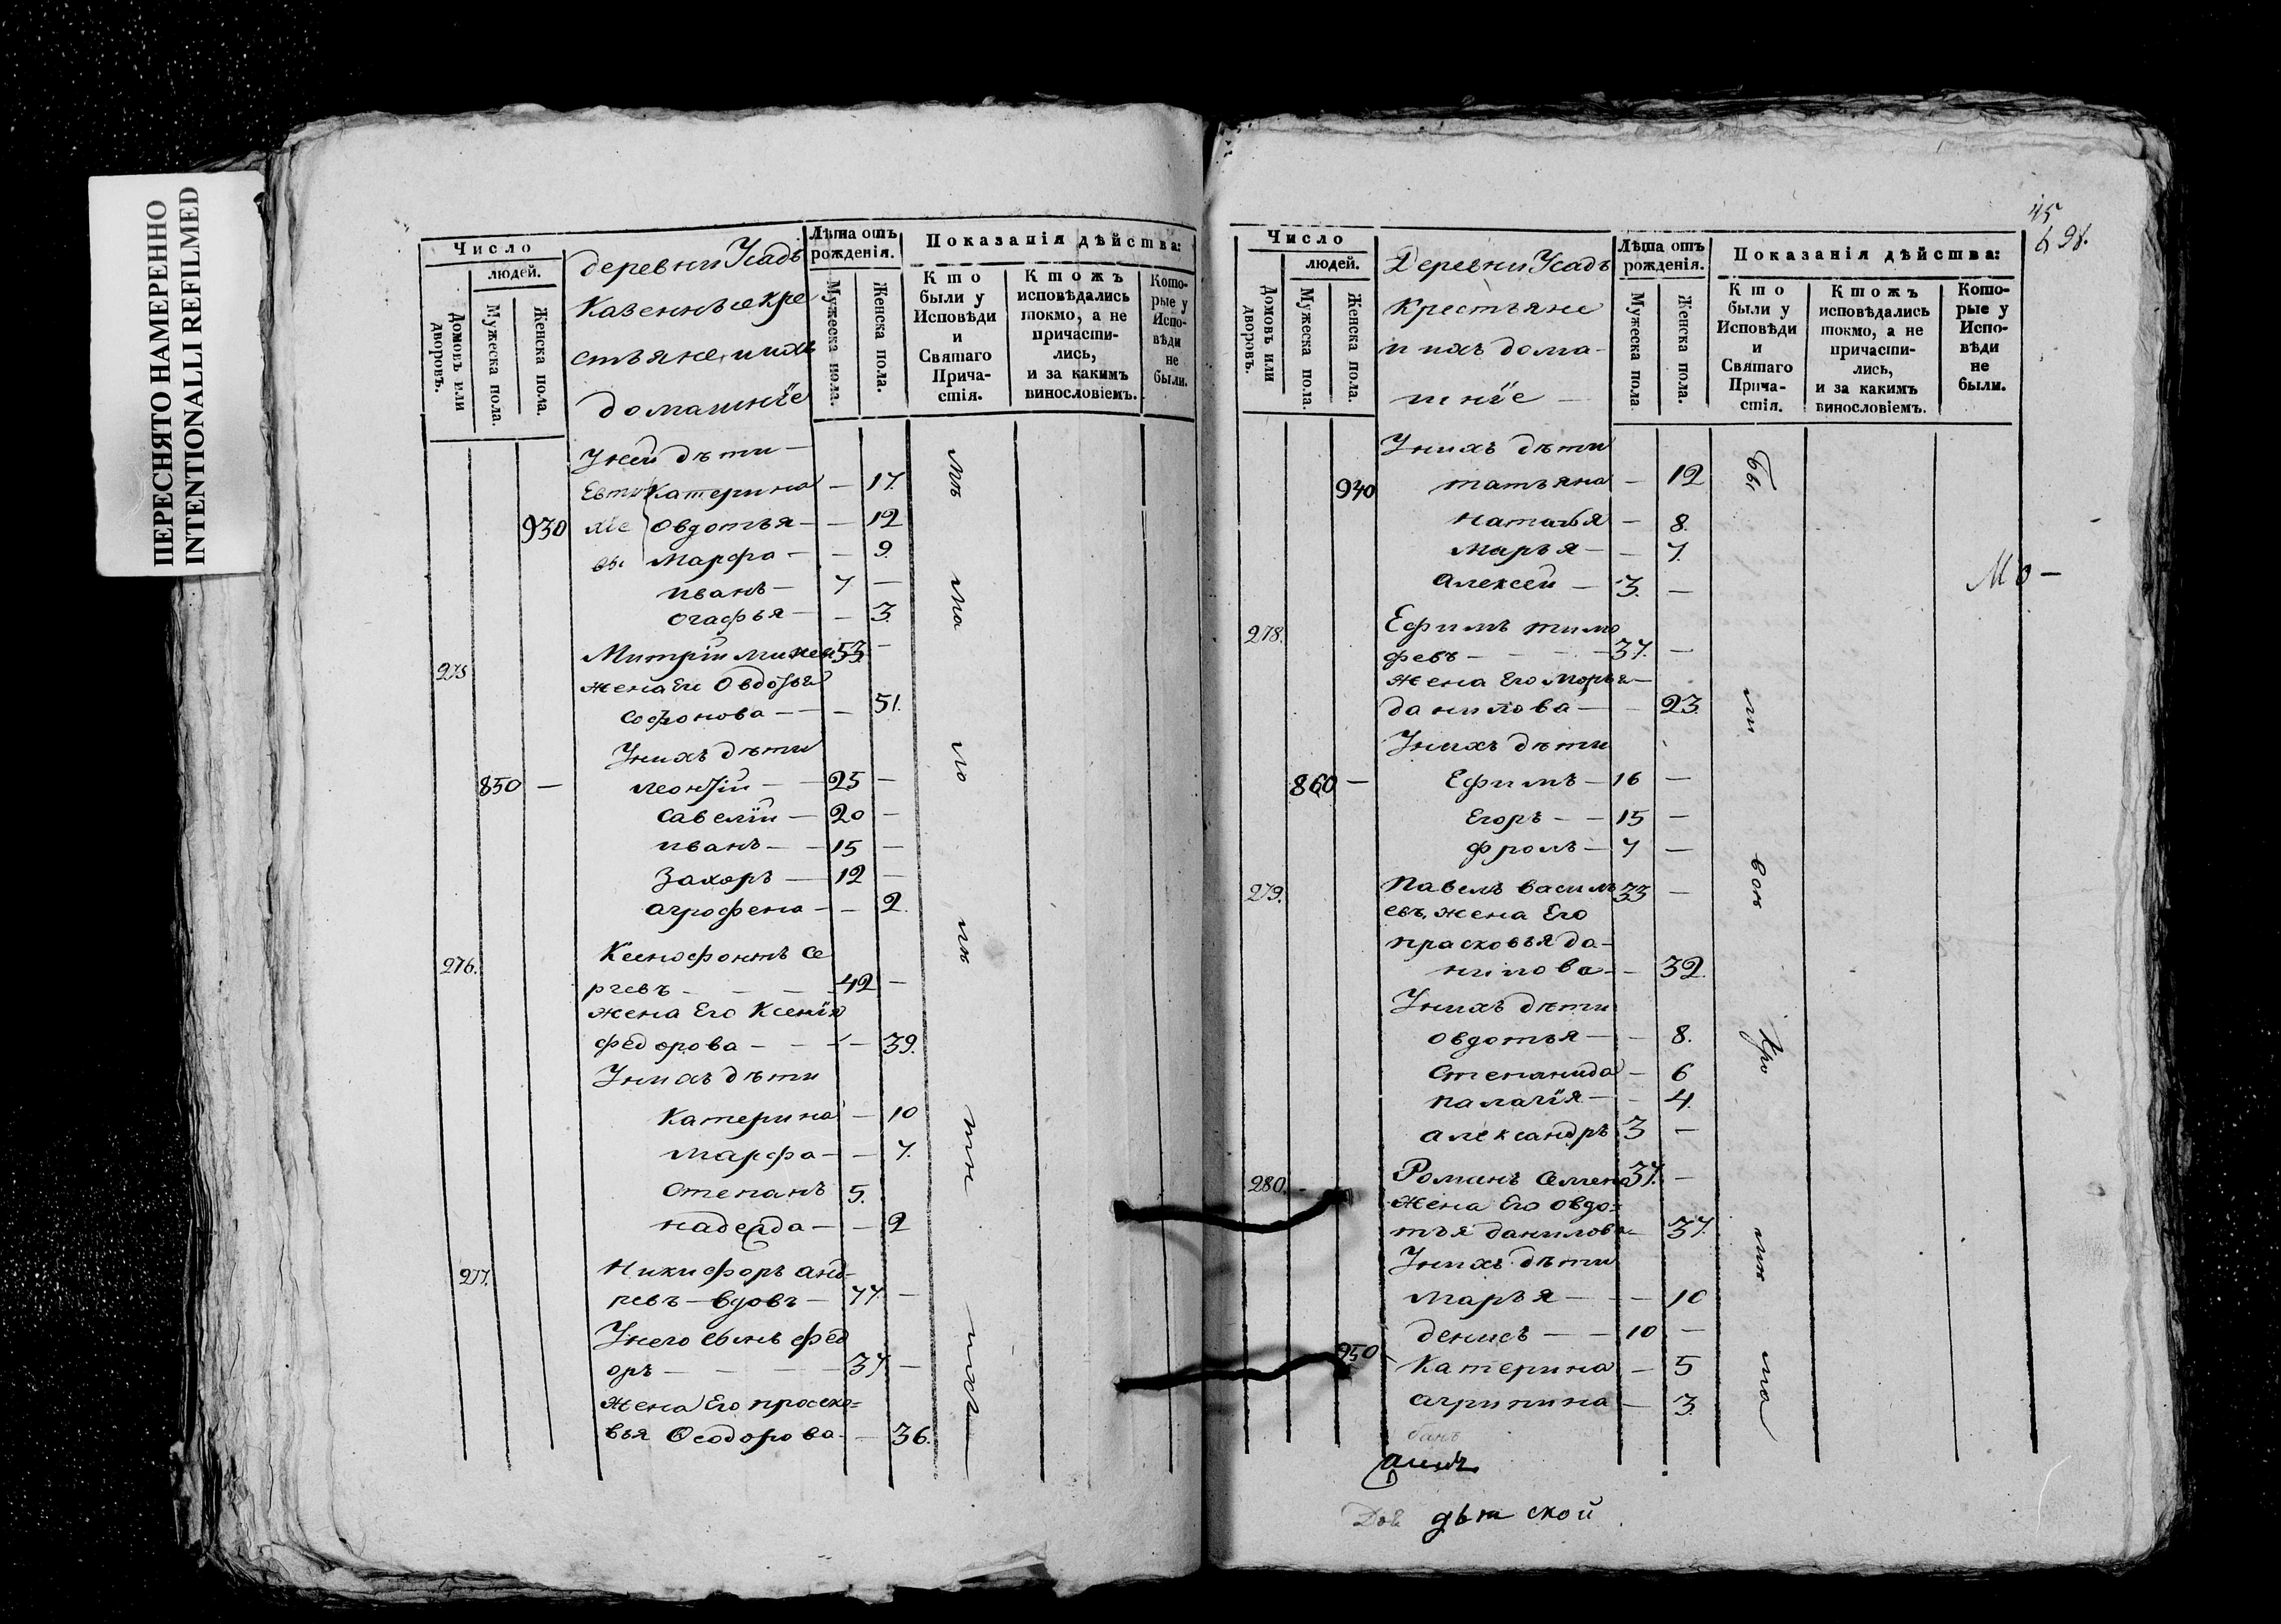 ПЕРЕСНЯТО НАМЕРЕННО
INTENTIONALLI REFILMED
Число
людей.
Домовъ или дворовъ.
Мужеска пола.
Женска пола.
деревни Усадъ
Казенные кре
стьяне, и ихъ
домашнїе
Лѣта отъ рожденія.
Мужеска пола.
Женска пола.
Показанія дѣйства:
Кто были у Исповѣди и Святаго Прича-стія.
Ктожъ исповѣдались токмо, а не причасти-лись, и за какимъ винословіемъ.
Кото-рые у Испо-вѣди не были.
У ней дѣти —
Евти Катерина — 17.
930 хїе Овдотья — — 12
вы Марфа — — 9.
Иванъ — 7 —
Огафья — — 3.
275 Митрїй Минеев 53. —
жена Ег Овдотья
Софонова — — — 51.
У нихъ дѣти
850 — Леонтїй — — 25 —
Савелїй — 20 —
Иванъ — — 15 —
Захоръ — 12 —
Агрофена — — 2.
276. Ксенофонтъ Се
ргевъ — — — 42 —
жена Его Ксенїя
Федорова — — — — 39.
У нихъ дѣти
Катерина — 10
Марфа — — 7.
Степанъ 5.
Надежда — — 2
277. Никифоръ Анд-
реевъ — вдовъ — 77 —
У него сынъ Фед
оръ — — — 37. —
Жена Его Праско=
вья Ѳеодорова — — 36.
45
98.
Число
людей.
Домовъ или дворовъ.
Мужеска пола.
Женска пола.
Деревни Усадъ
Крестьяне
и ихъ дома-
шнїе —
Лѣта отъ рожденія.
Мужеска пола
Женска пола.
Показанія дѣйства:
Кто были у Исповѣди и Святаго Прича-стія.
Ктожъ исповѣдались токмо, а не причасти-лись, и за какимъ винословіемъ.
Кото-рые у Испо-вѣди не были.
У нихъ дѣти
940 Татьяна — 12
Наталья — 8.
Марья — — 7.
Алексей — 3. —
278. Ефимъ Тимо
февъ — — — 37. —
жена Его Марья —
Данилова — — 23.
У нихъ дѣти
860 — Ефимъ — 16 —
Егоръ — — 15 —
Фролъ — 7 —
279. Павелъ Василь 33 —
евъ, жена Его
Прасковья Да-
нилова — — 32.
У нихъ дѣти
Овдотья — — 8.
Степанида — 6
Палагїя — — 4.
Александръ 3 —
280. — Романъ Семено 37. —
Жена Его Овдо=
тья Данилова — 37.
У нихъ дѣти
Марья — — — 10
Денисъ — — 10 —
950 Катерина — 5
Агрипина — 3.
бы
ли